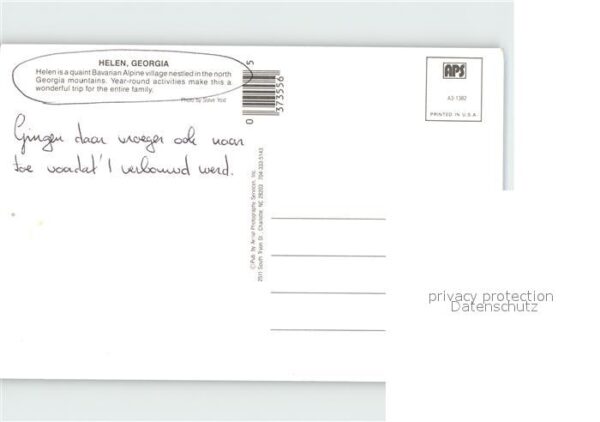 HELEN, GEORGIA
Helen is a quaint Bavarian Alpine village nestled in the north
Georgia mountains. Year-round activities make this a
wonderful trip for the entire family.
Photo by Steve Yost
Gingen daar vroeger ook naar
toe voordat 't verbouwd werd.
0 373556 5
© Pub. by Aerial Photography Services, Inc.
2511 South Tryon St., Charlotte, NC 28203 704-333-5143
APS
A3-1382
PRINTED IN U.S.A
privacy protection
Datenschutz